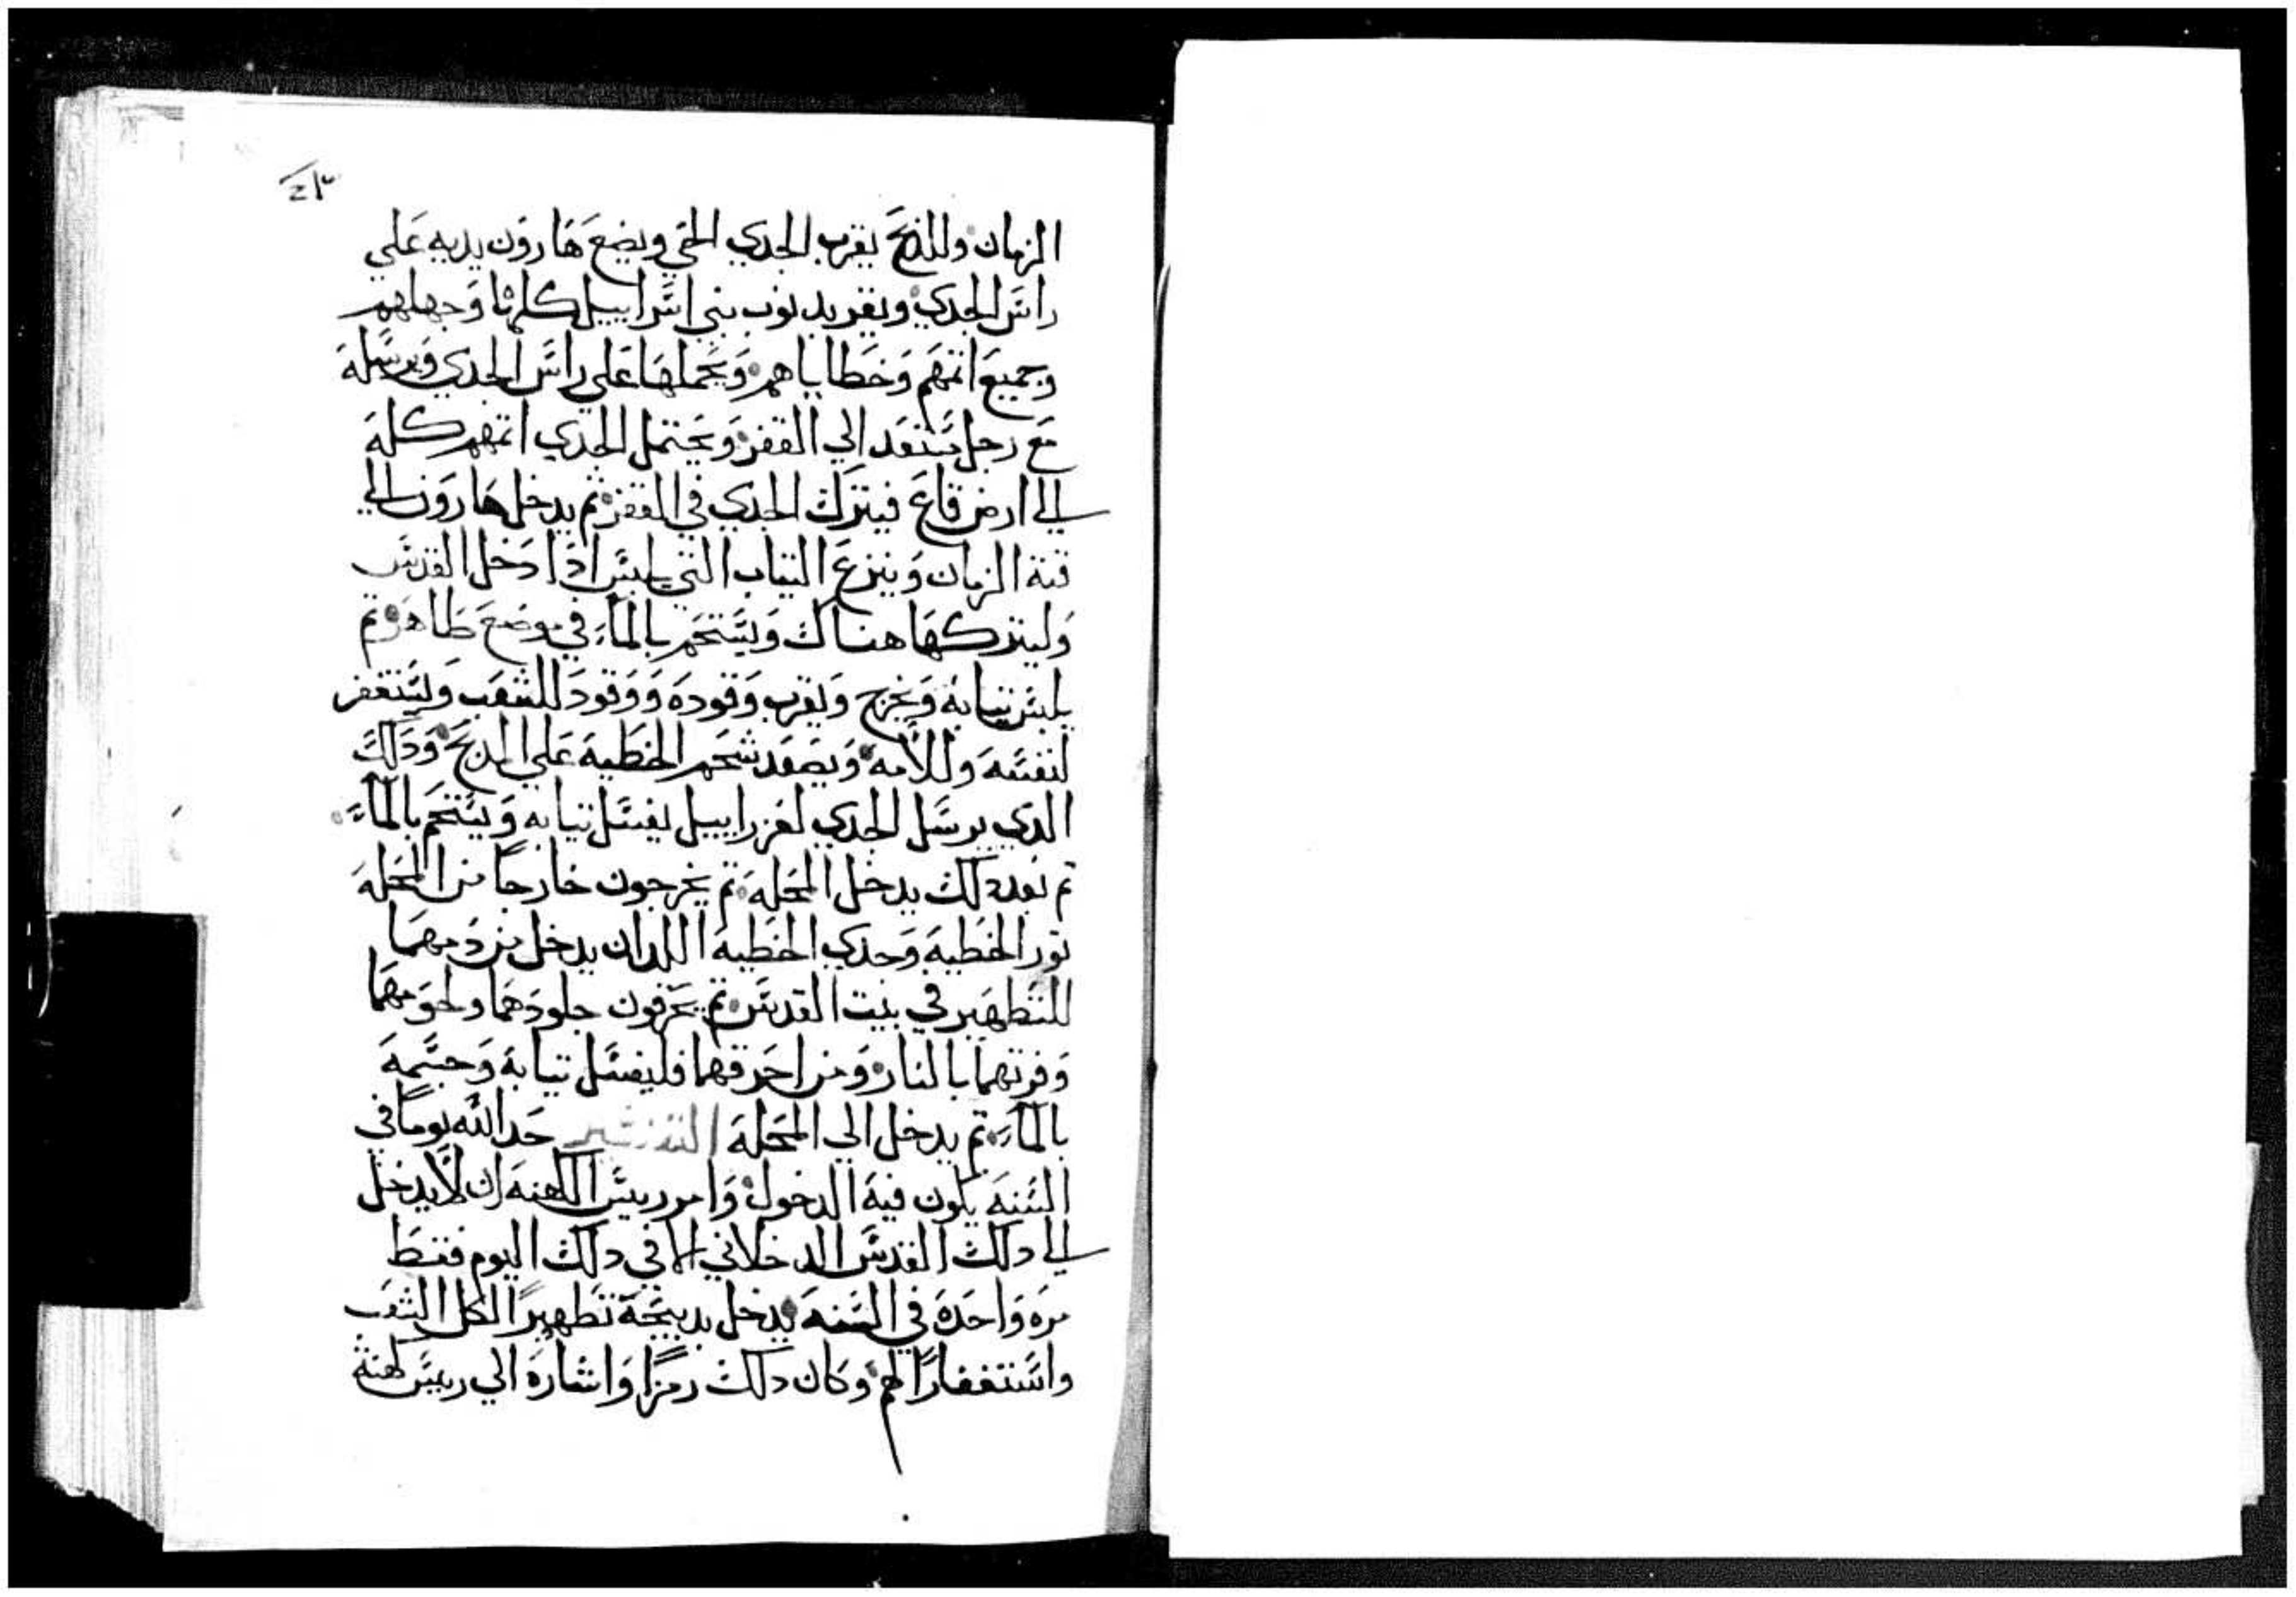 الزمان وللمذبح يقرب الجدي الحي ويضع هارون يديه علي
راس الجدي ويقر بدنوب بني اسراييل كلها وجهلهم
وجميع اتمهم وخطاياهم ويجعلها علي راس الجدي ويرسله
مع رجل مستعد الي القفر ويحتمل الجدي اتمهم كله
الي ارض قاع فيترك الجدي في القفر ثم يدخل هارون الي
قبة الزمان وينزع التياب التي يلبس ادا دخل القدس
وليتركها هناك ويستحم بالماء في موضع طاهر تم
يلبس تيابه ويخرج ويقرب وقوده ووقود الشعب وليستغفر
لنفسه وللامه ويصعد شحم الخطية علي المدبح ودلك
الدي يرسل الجدي لعزراييل يغسل تيابه ويستحم بالماء
تم بعد دلك يدخل المحله تم يخرجون خارجا من المحله
تور الخطية وجدي الخطية اللدان يدخل من دمهما
للتطهير في بيت القدس تم يحرقون جلودهما ولحومهما
وفرتهما بالنار ومن احرقهما فليغسل تيابه وجسمه
بالماء تم يدخل الي المحلة التفسير حد الله يوما في
السنه يكون فيه الدخول وامر رييس الكهنه ان لا يدخل
الي دلك القدس الدخلاني الا في دلك اليوم فقط
مره واحده في السنه يدخل بدبيحة تطهيرا لكل الشعب
واستغفارا لهم وكان دلك رمزا واشاره الي رييس كهنة